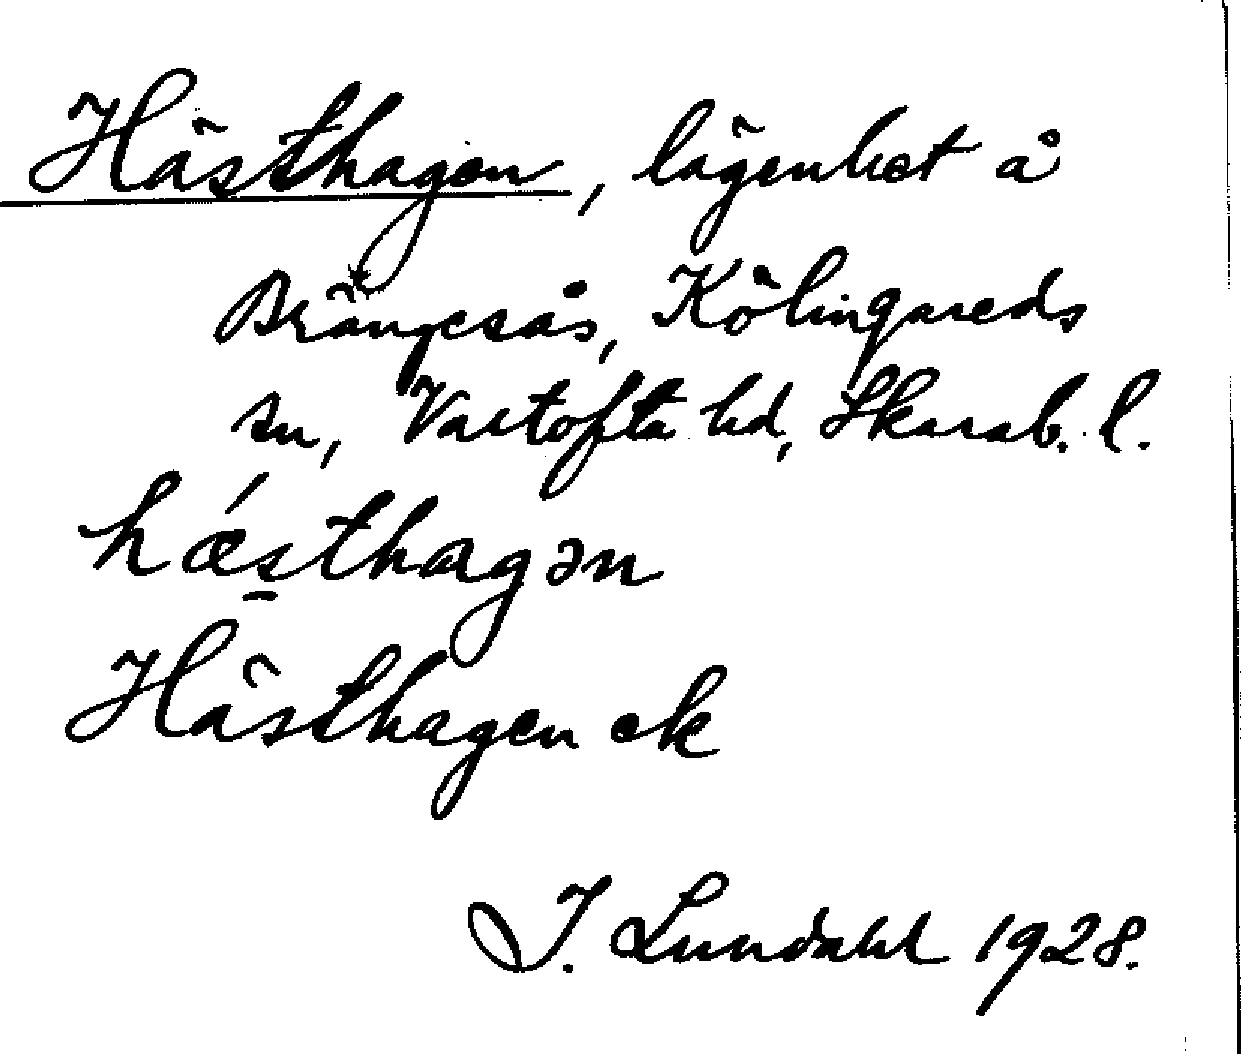 Hästhagen, lägenhet å
Brängesås, Kölingareds
sn, Vartofta hd, Skarab. l.
hǽsthagən
Hästhagen ek
I. Lundahl 1928.